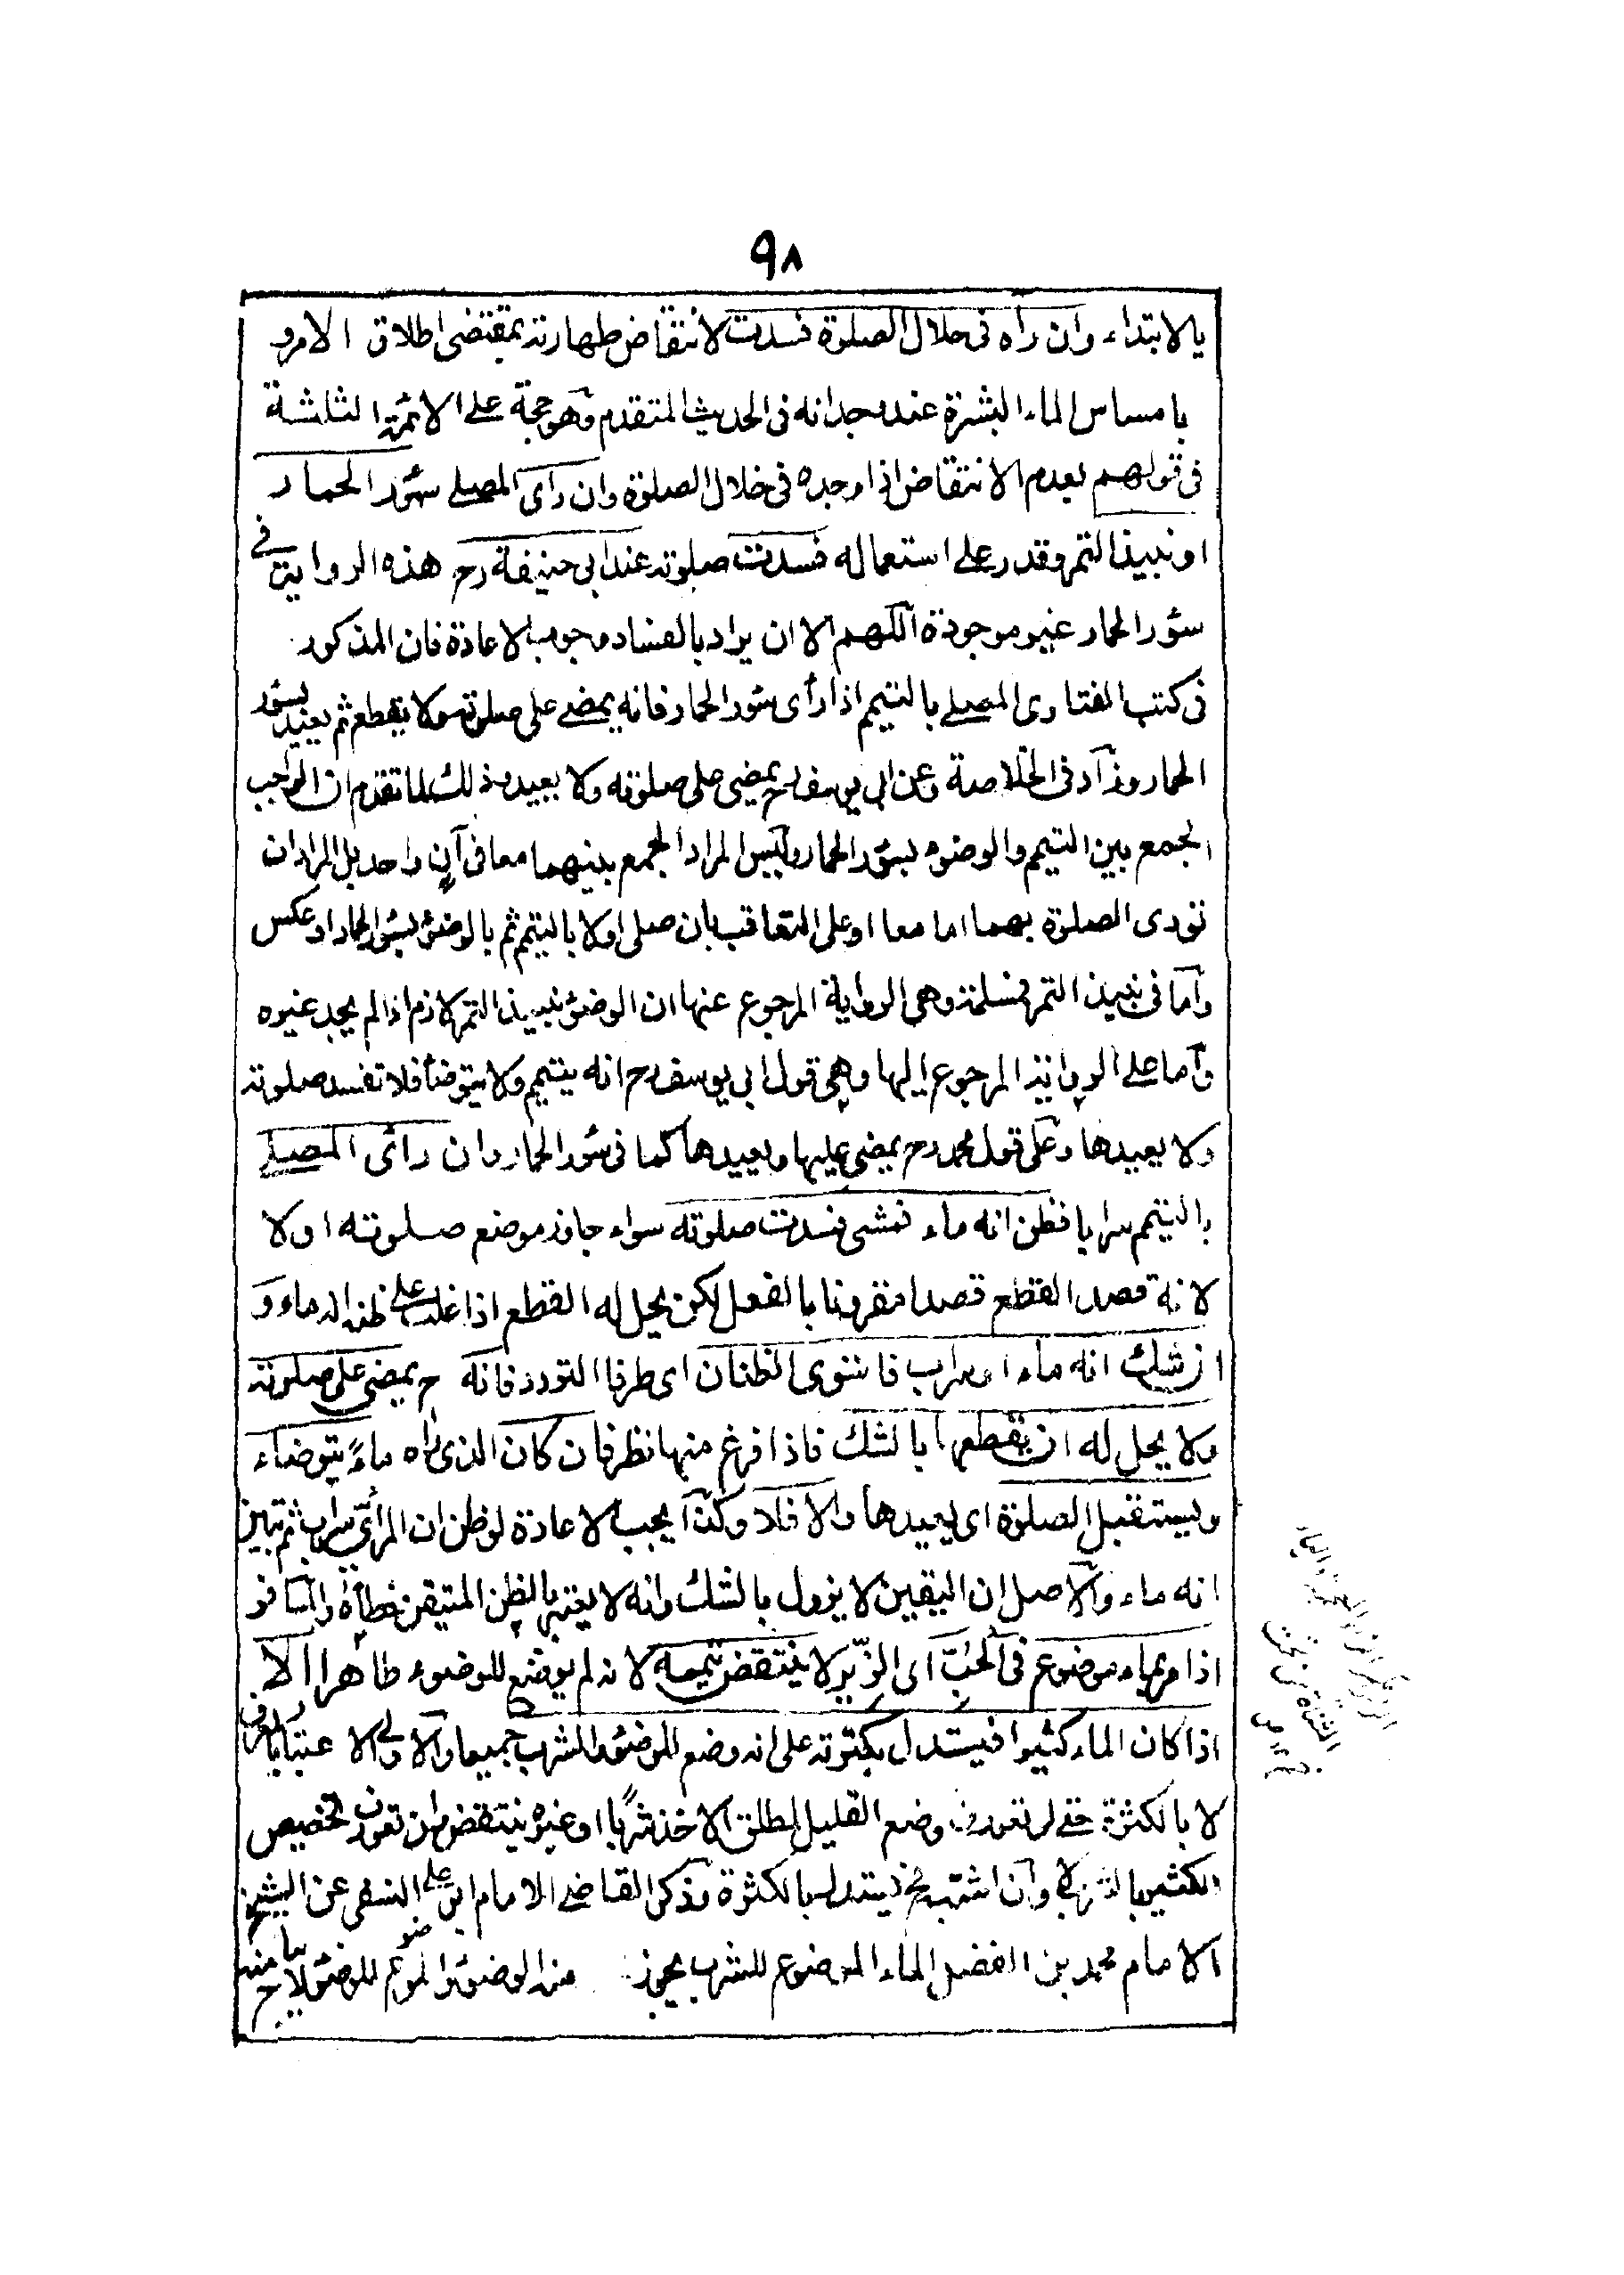 ٩٨
بالابتداء وان راه فى خلال الصلوة فسدت لانتقاض طهارته بمقتضى اطلاق الامر و
بامساس الماء البشرة عند وجدانه فى الحديث المتقدم وهو حجة على الائمة الثلثة
فى قولهم بعدم الانتقاض اذا وجده فى خلال الصلوة وان راى المصلى سؤر الحمار
او نبيذ التمر وقدر على استعماله فسدت صلوته عند ابى حنيفة رح هذه الرواية فى
سؤر الحمار غير موجودة اللهم الا ان يراد بالفساد وجوب الاعادة فان المذكور
فى كتب الفتاوى المصلى بالتيمم اذا رأى سؤر الحمار فانه يمضى على صلوته ولا يقطع ثم يعيد بسؤر
الحمار وزاد فى الخلاصة وعن ابى يوسف رح يمضى على صلوته ولا يعيد وذلك لما تقدم ان الواجب
الجمع بين التيمم والوضوء بسؤر الحمار وليس المراد الجمع بينهما معا فى آن واحد بل المراد ان
تؤدى الصلوة بهما اما معا او على التعاقب بان صلى اولا بالتيمم ثم بالوضوء بسؤر الحمار او عكس
واما فى نبيذ التمر فمسلمة وهى الرواية المرجوع عنها ان الوضوء بنبيذ التمر لازم اذا لم يجد غيره
واما على الرواية المرجوع اليها وهى قول ابى يوسف رح انه يتيمم ولا يتوضأ فلا تفسد صلوته
ولا يعيدها وعلى قول محمد رح يمضى عليها ويعيدها كما فى سؤر الحمار وان رأى المصلى
بالتيمم سرابا فظن انه ماء فمشى فسدت صلوته سواء جاوز موضع صلوته اولا
لانه قصد القطع قصدا مقرونا بالفعل لكن يحل له القطع اذا غلب على ظنه انه ماء و
ان شك انه ماء او سراب فاستوى الظنان اى طرفا التردد فانه ح يمضى على صلوته
ولا يحل له ان يقطعها بالشك فاذا فرغ منها نظر فان كان الذى راه ماءً يتوضاء
ويستقبل الصلوة اى يعيدها والا فلا وكذا يجب الاعادة لو ظن ان المرأى سراب ثم تبين
انه ماء والاصل ان اليقين لا يزول بالشك وانه لا يعتبر بالظن المتيقن خطأه والمسافر
اذا مر بماء موضوع فى الحُبّ اى الزّير لا ينتقض تيممه لانه لم يوضع للوضوء ظاهرا الا
اذا كان الماء كثيرا فيستدل بكثرته على انه وضع للوضوء والشرب جميعا والاولى الاعتبار بالعرف
لا بالكثرة حتى لو تعورف وضع القليل لمطلق الاخذ شربا او غيره ينتقض وان تعورف تخصيص
الكثير بالشرب لا وان اشتبه فح يستدل بالكثرة وذكر القاضى الامام ابو على النسفى عن الشيخ
الامام محمد بن الفضل الماء الموضوع للشرب يجوز منه الوضوء والموضوع للوضوء لا يباح منه